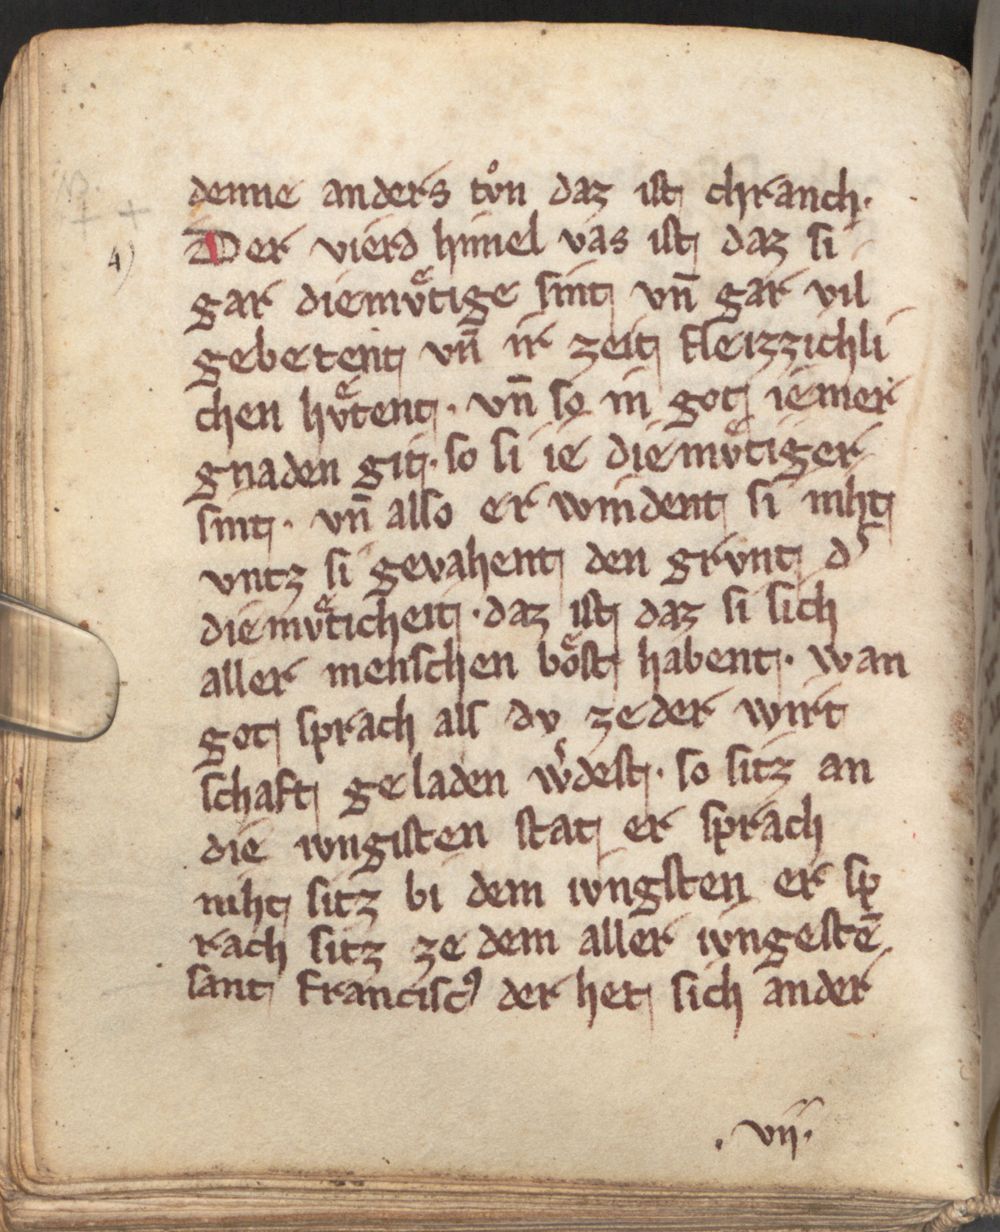 denne anders tůn daz ist chranch·
Der vierd himel vas ist daz si
4)
gar diemvͤtige sint vn̄ gar vil
gebetent vn̄ ir zeit fleizzichli
chen hvͤtent· vn̄ so in got iemer
gnaden git· so si ie diemvͤtiger
sint· vn̄ also er windent si niht
vntz si gevahent den grvnt d᾽
diemvͤticheit· daz ist daz si sich
aller menschen boͤst habent· wan
got sprach als dv ze der wirt
schaft geladen w᾽dest· so sitz an
die ivngisten stat er sprach
niht sitz bi dem ivngsten er sp
rach sitz ze dem aller ivngestē
sant franciscꝰ der het sich ander
· vij·